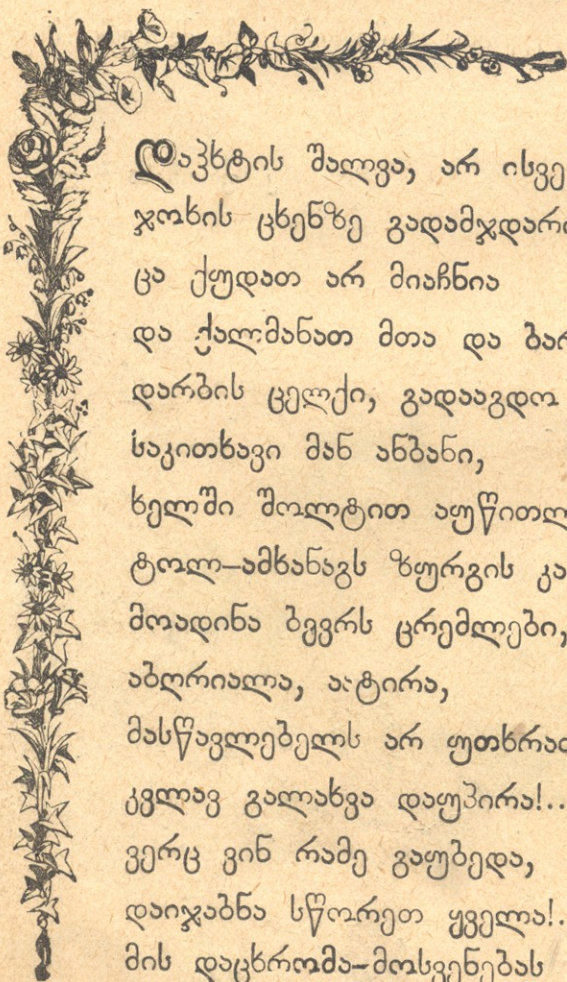 დაჰხტის შალვა, არ ისვე
ჯოხის ცხენზე გადამჯდარი
ცა ქუდათ არ მიაჩნია
და ქალმანათ მთა და ბარ
დარბის ცელქი, გადააგდო
საკითხავი მან ანბანი,
ხელში შოლტით აუწითლ
ტოლ-ამხანაგს ზურგის კა
მოადინა ბევრს ცრემლები,
აბღრიალა, ატირა,
მასწავლებელს არ უთხრათ
კვლავ გალახვა დაუპირა!..
ვერც ვინ რამე გაუბედა,
დაიჯაბნა სწორეთ ყველა!.
მის დაცხრომა-მოსვენებას